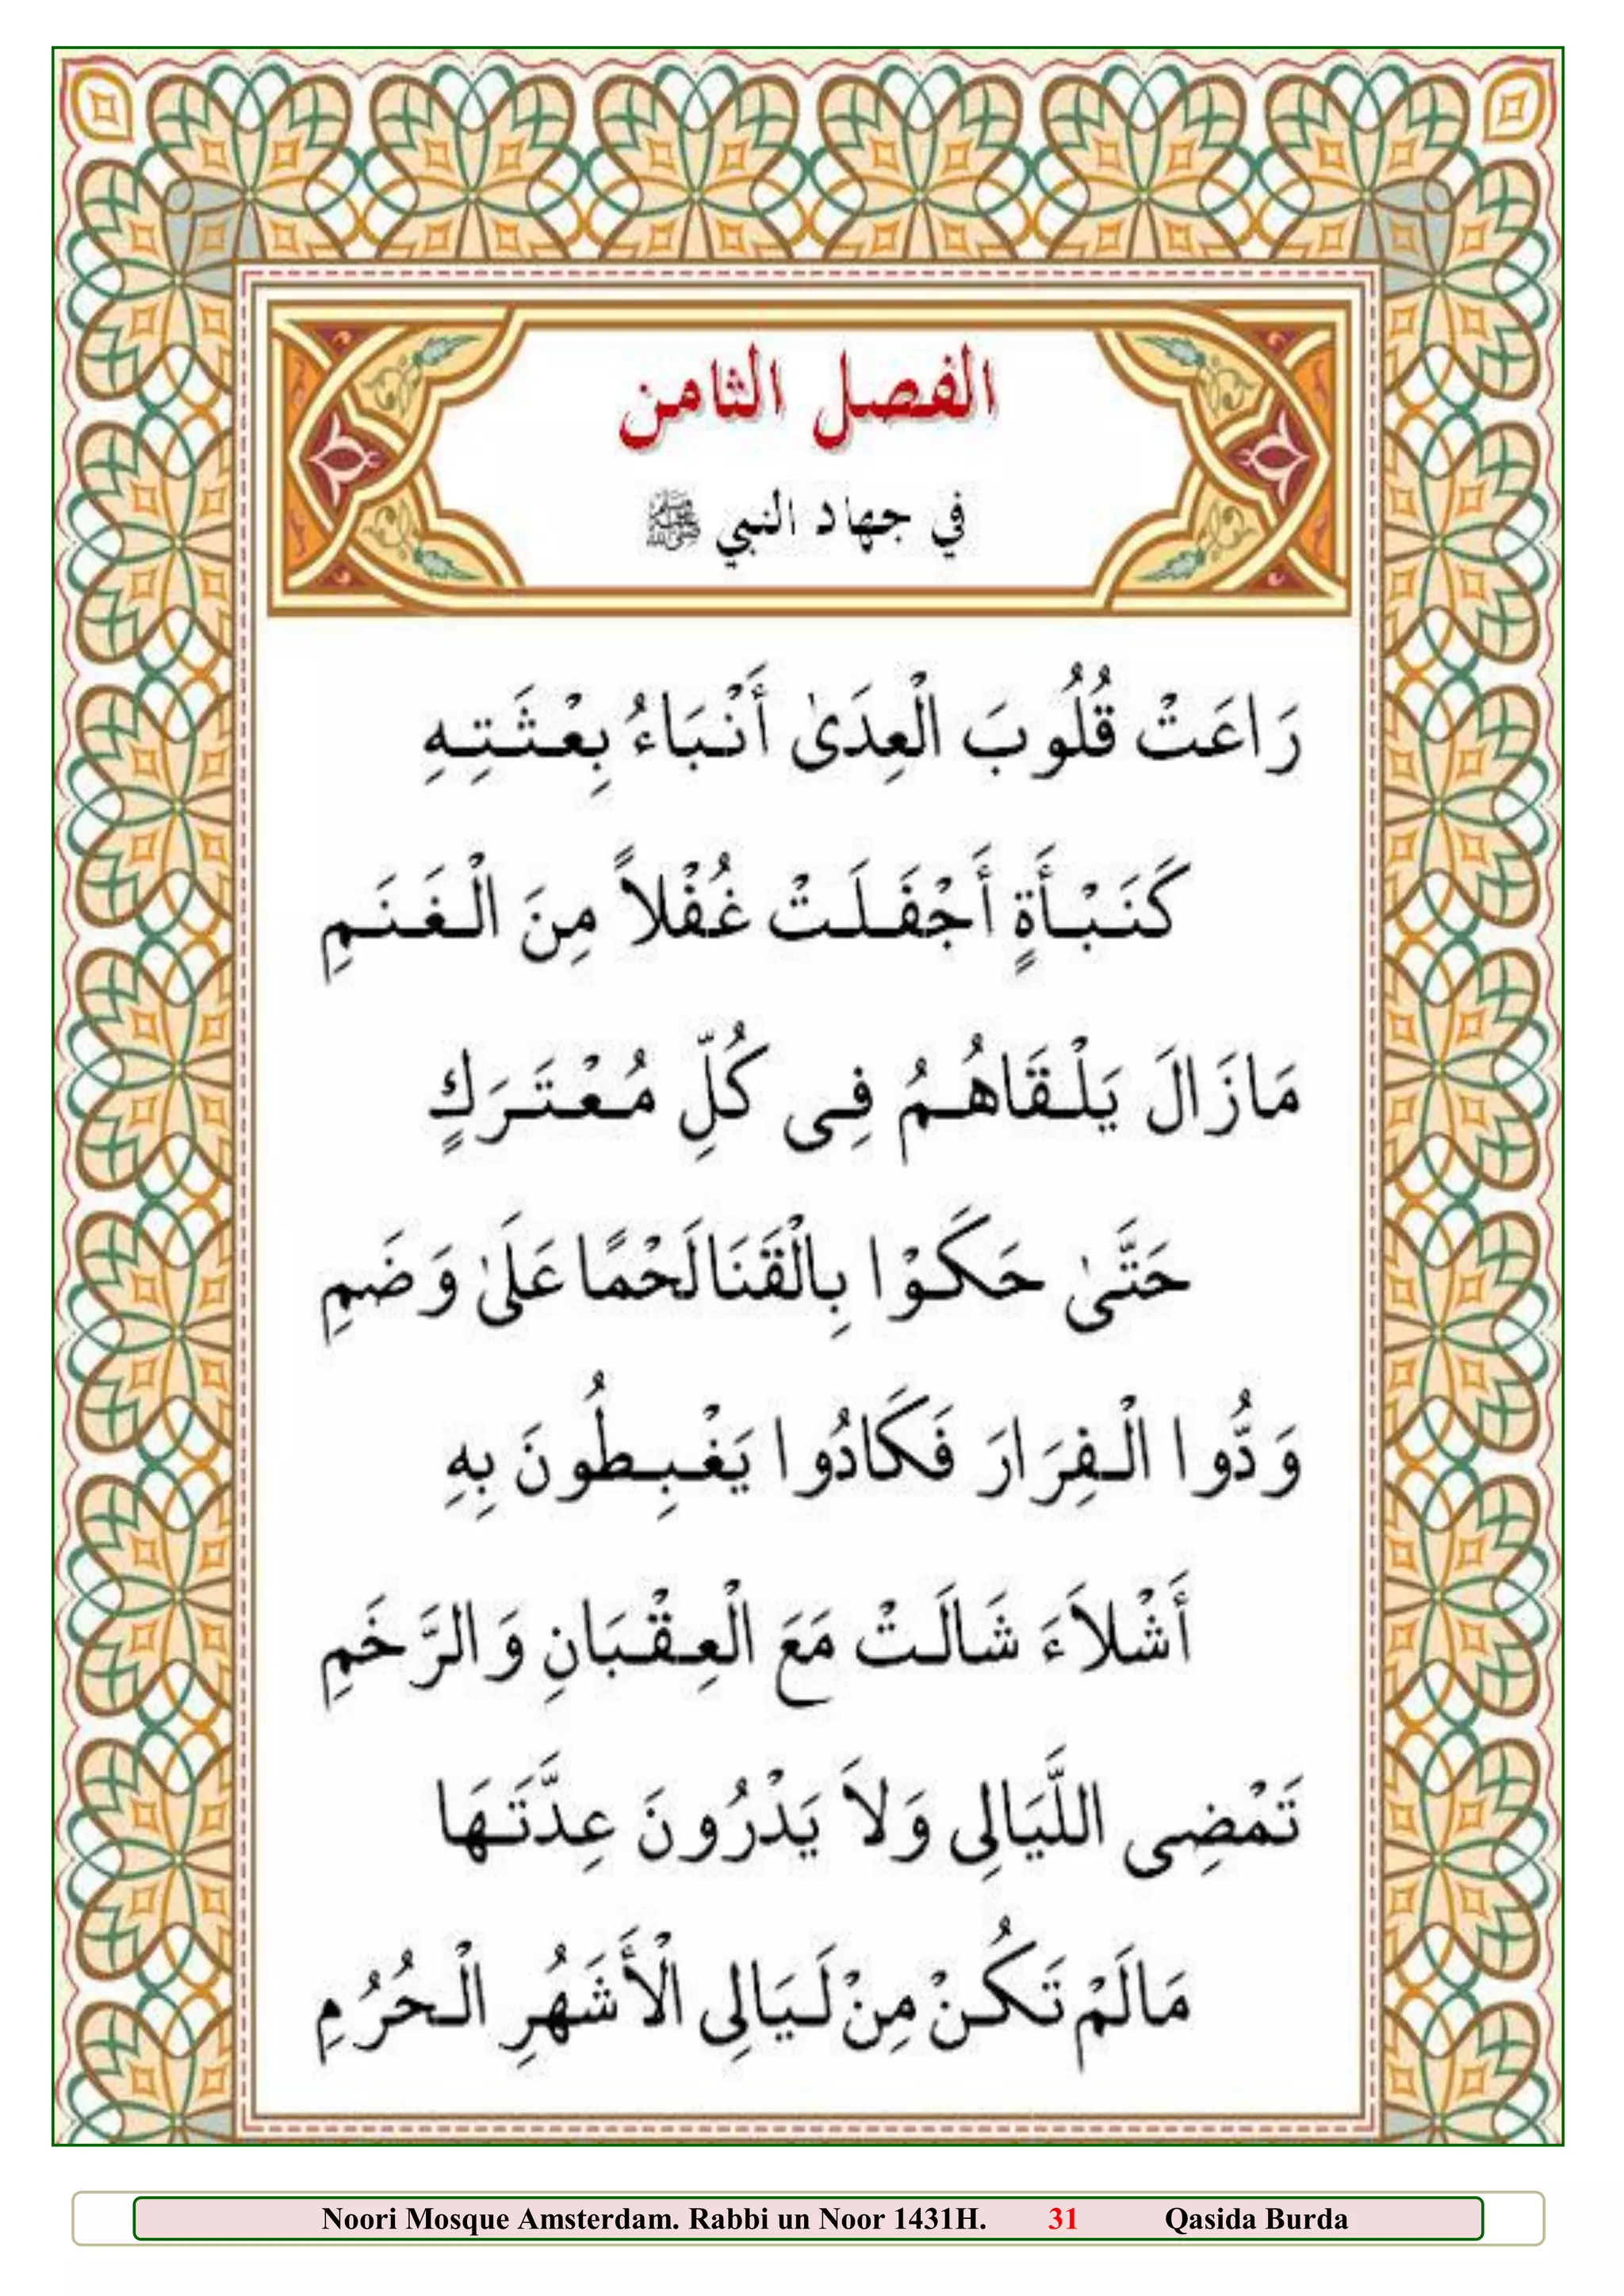 الفصل الثامن
في جهاد النبي ﷺ
رَاعَتْ قُلُوبَ الْعِدَىٰ أَنْبَاءُ بِعْثَتِهِ
كَنَبْأَةٍ أَجْفَلَتْ غُفْلاً مِنَ الْغَنَمِ
مَازَالَ يَلْقَاهُمُ فِى كُلِّ مُعْتَرَكٍ
حَتَّىٰ حَكَوْا بِالْقَنَا لَحْمًا عَلَىٰ وَضَمِ
وَدُّوا الْفِرَارَ فَكَادُوا يَغْبِطُونَ بِهِ
أَشْلاَءَ شَالَتْ مَعَ الْعِقْبَانِ وَالرَّخَمِ
تَمْضِى اللَّيَالِى وَلاَ يَدْرُونَ عِدَّتَهَا
مَالَمْ تَكُنْ مِنْ لَيَالِى الْأَشَهُرِ الْحُرُمِ
Noori Mosque Amsterdam. Rabbi un Noor 1431H. 31 Qasida Burda